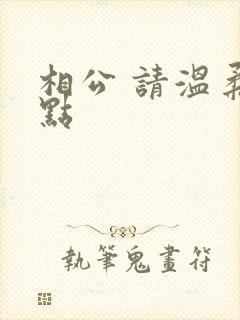 相公 請溫柔
點
執筆鬼畫符